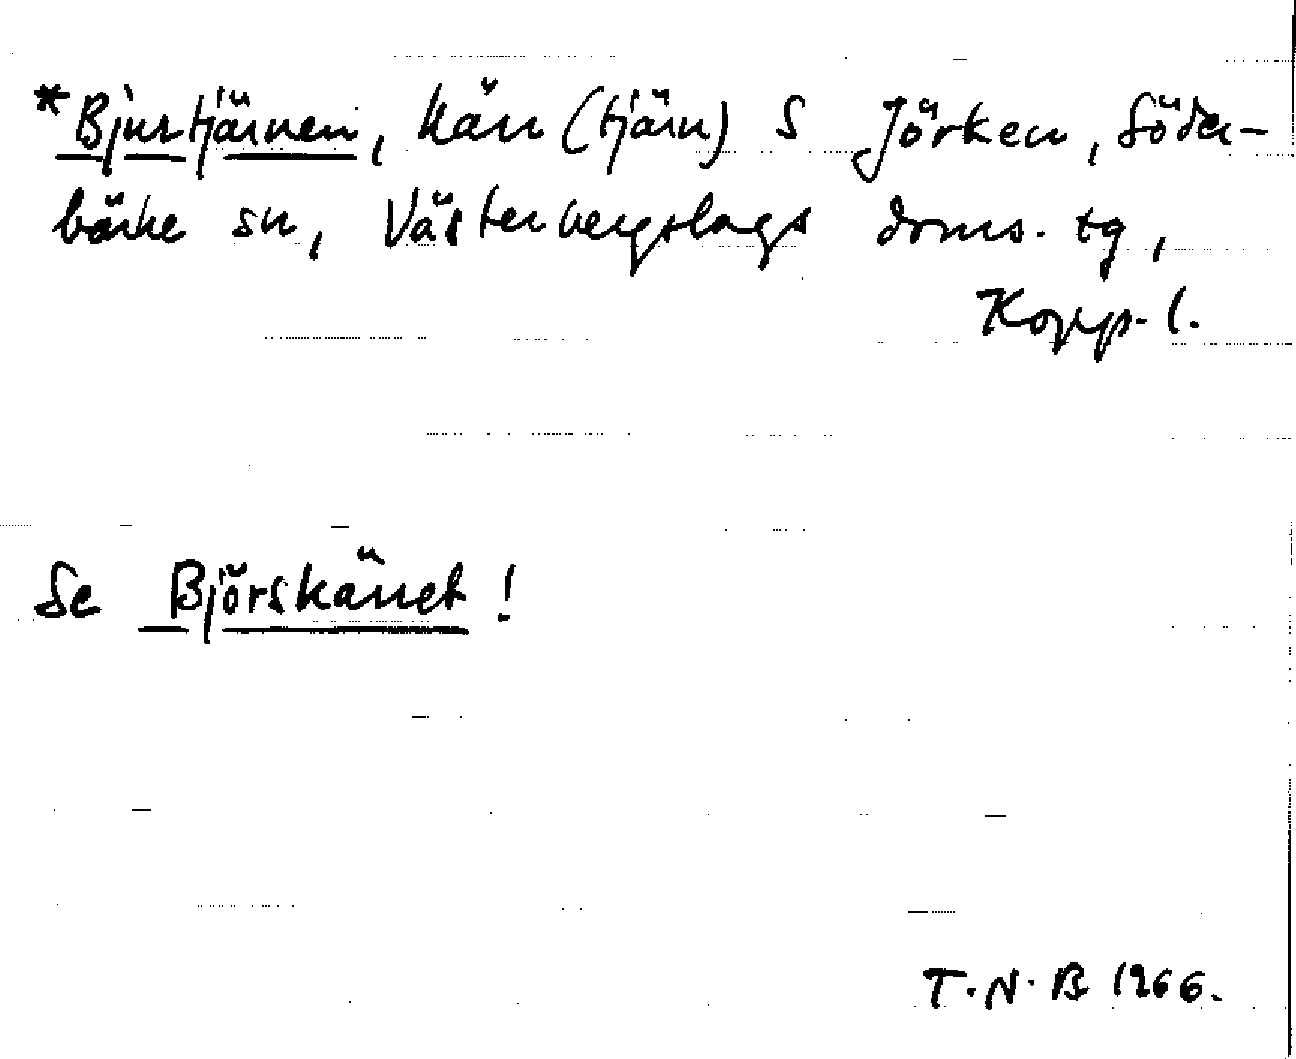 *Bjurtjärnen, kärr (tjärn) S Jörken, Söder-
bärke sn, Västerbergslags doms. tg,
Kopp. l.
Se Björskärret!
T.N.B 1966.